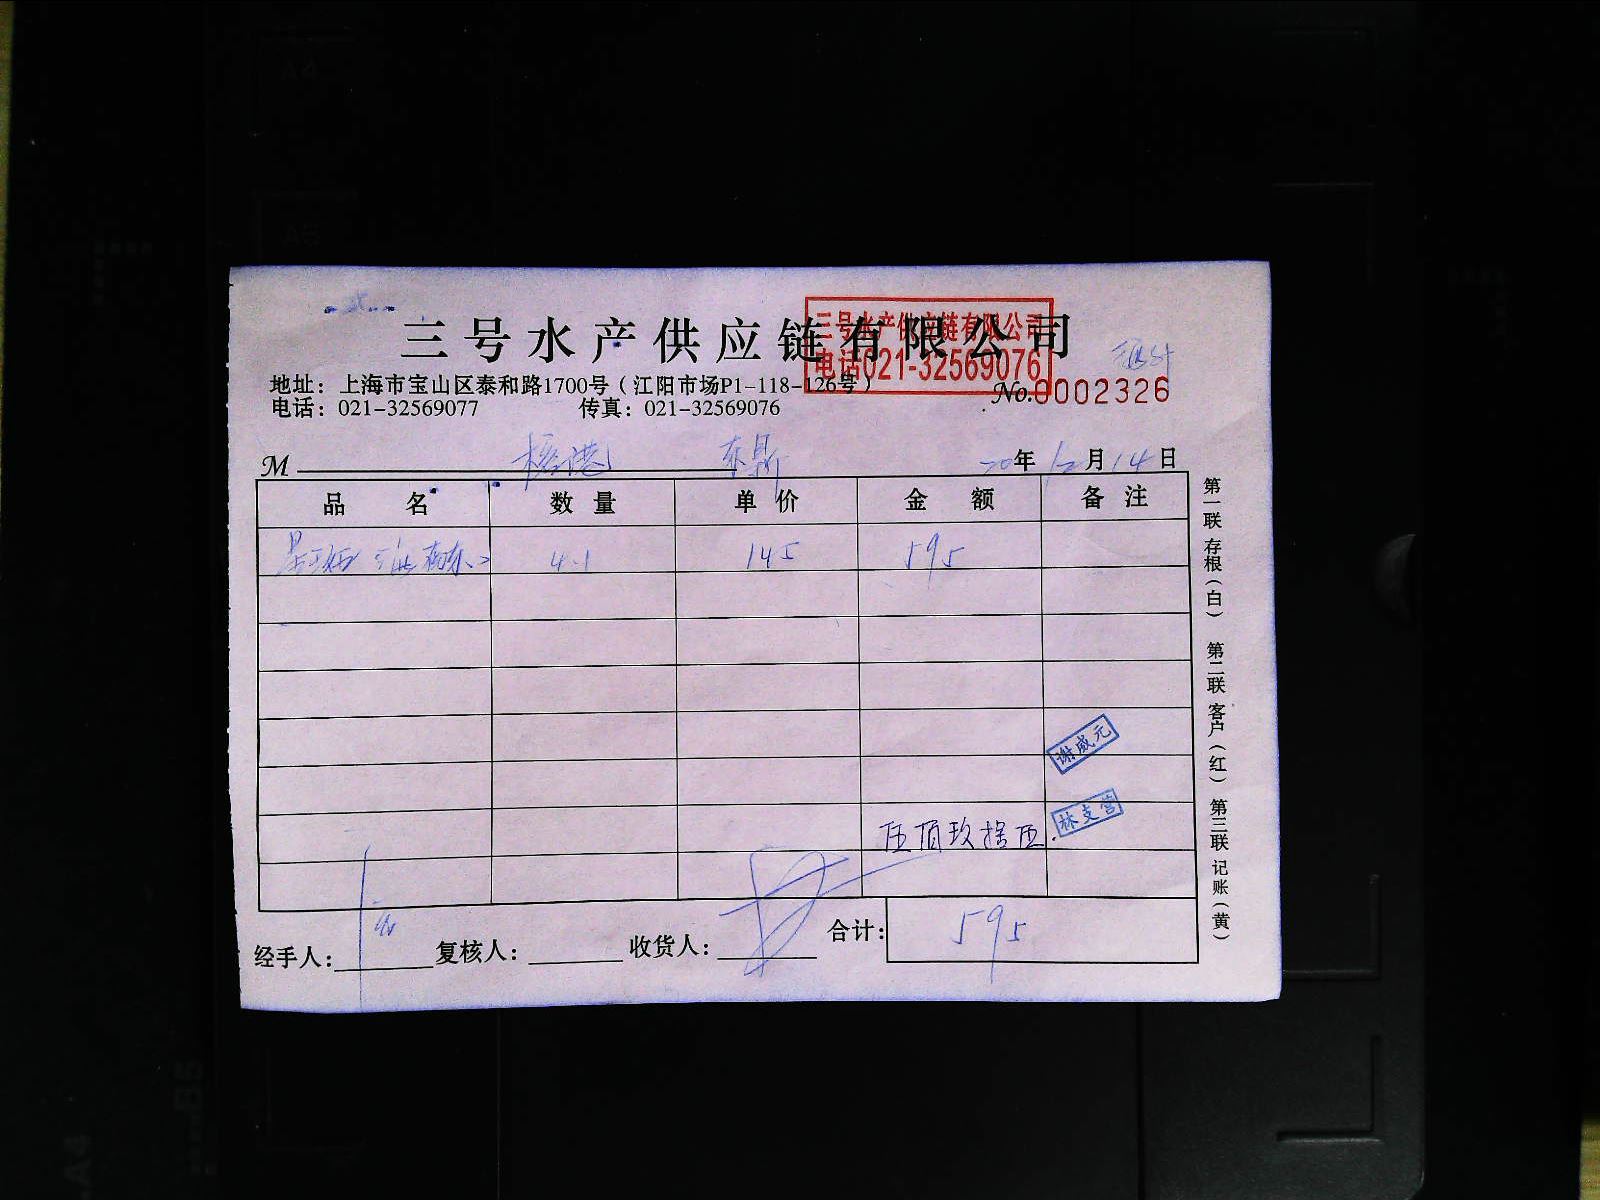 三号水产供应链有限公司
三号水产供应链有限公司
电话021-32569076
地址：上海市宝山区泰和路1700号（江阳市场P1-118-126号）
电话：021-32569077 传真：021-32569076
No.0002326
M 20年12月14日
品 名 数 量 单 价 金 额 备 注
4.1 145 595
谢威元
林支营
伍佰玖拾伍
经手人： 复核人： 收货人： 合计： 595
第一联 存根（白） 第二联 客户（红） 第三联 记账（黄）